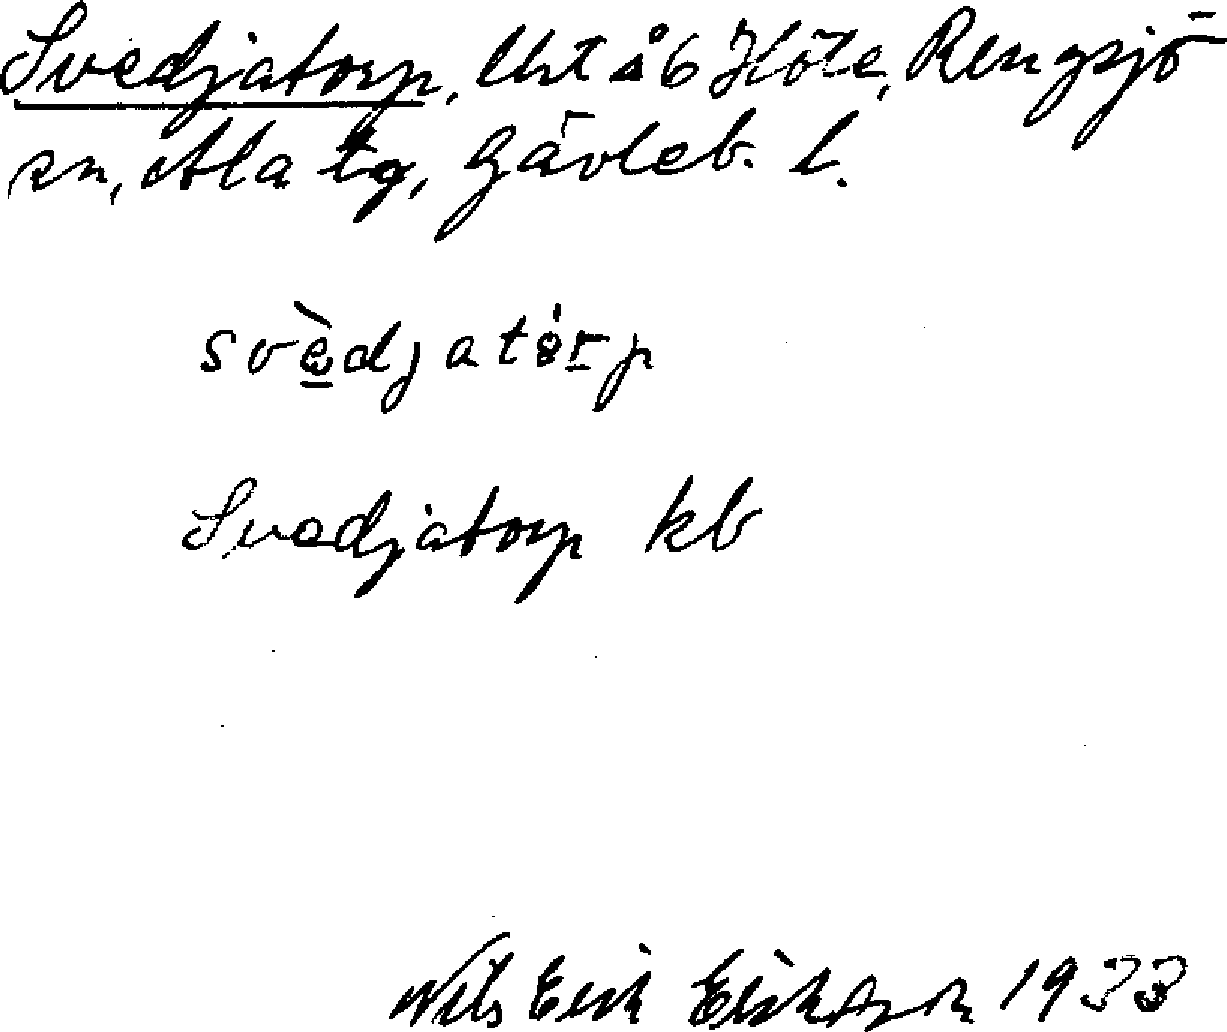 Svedjatorp, lht å 6 Höle, Rengsjö
sn, Ala tg, Gävleb. l.
svèdjatórp
Svedjatorp kb
Nils Erik Erikssson 1933